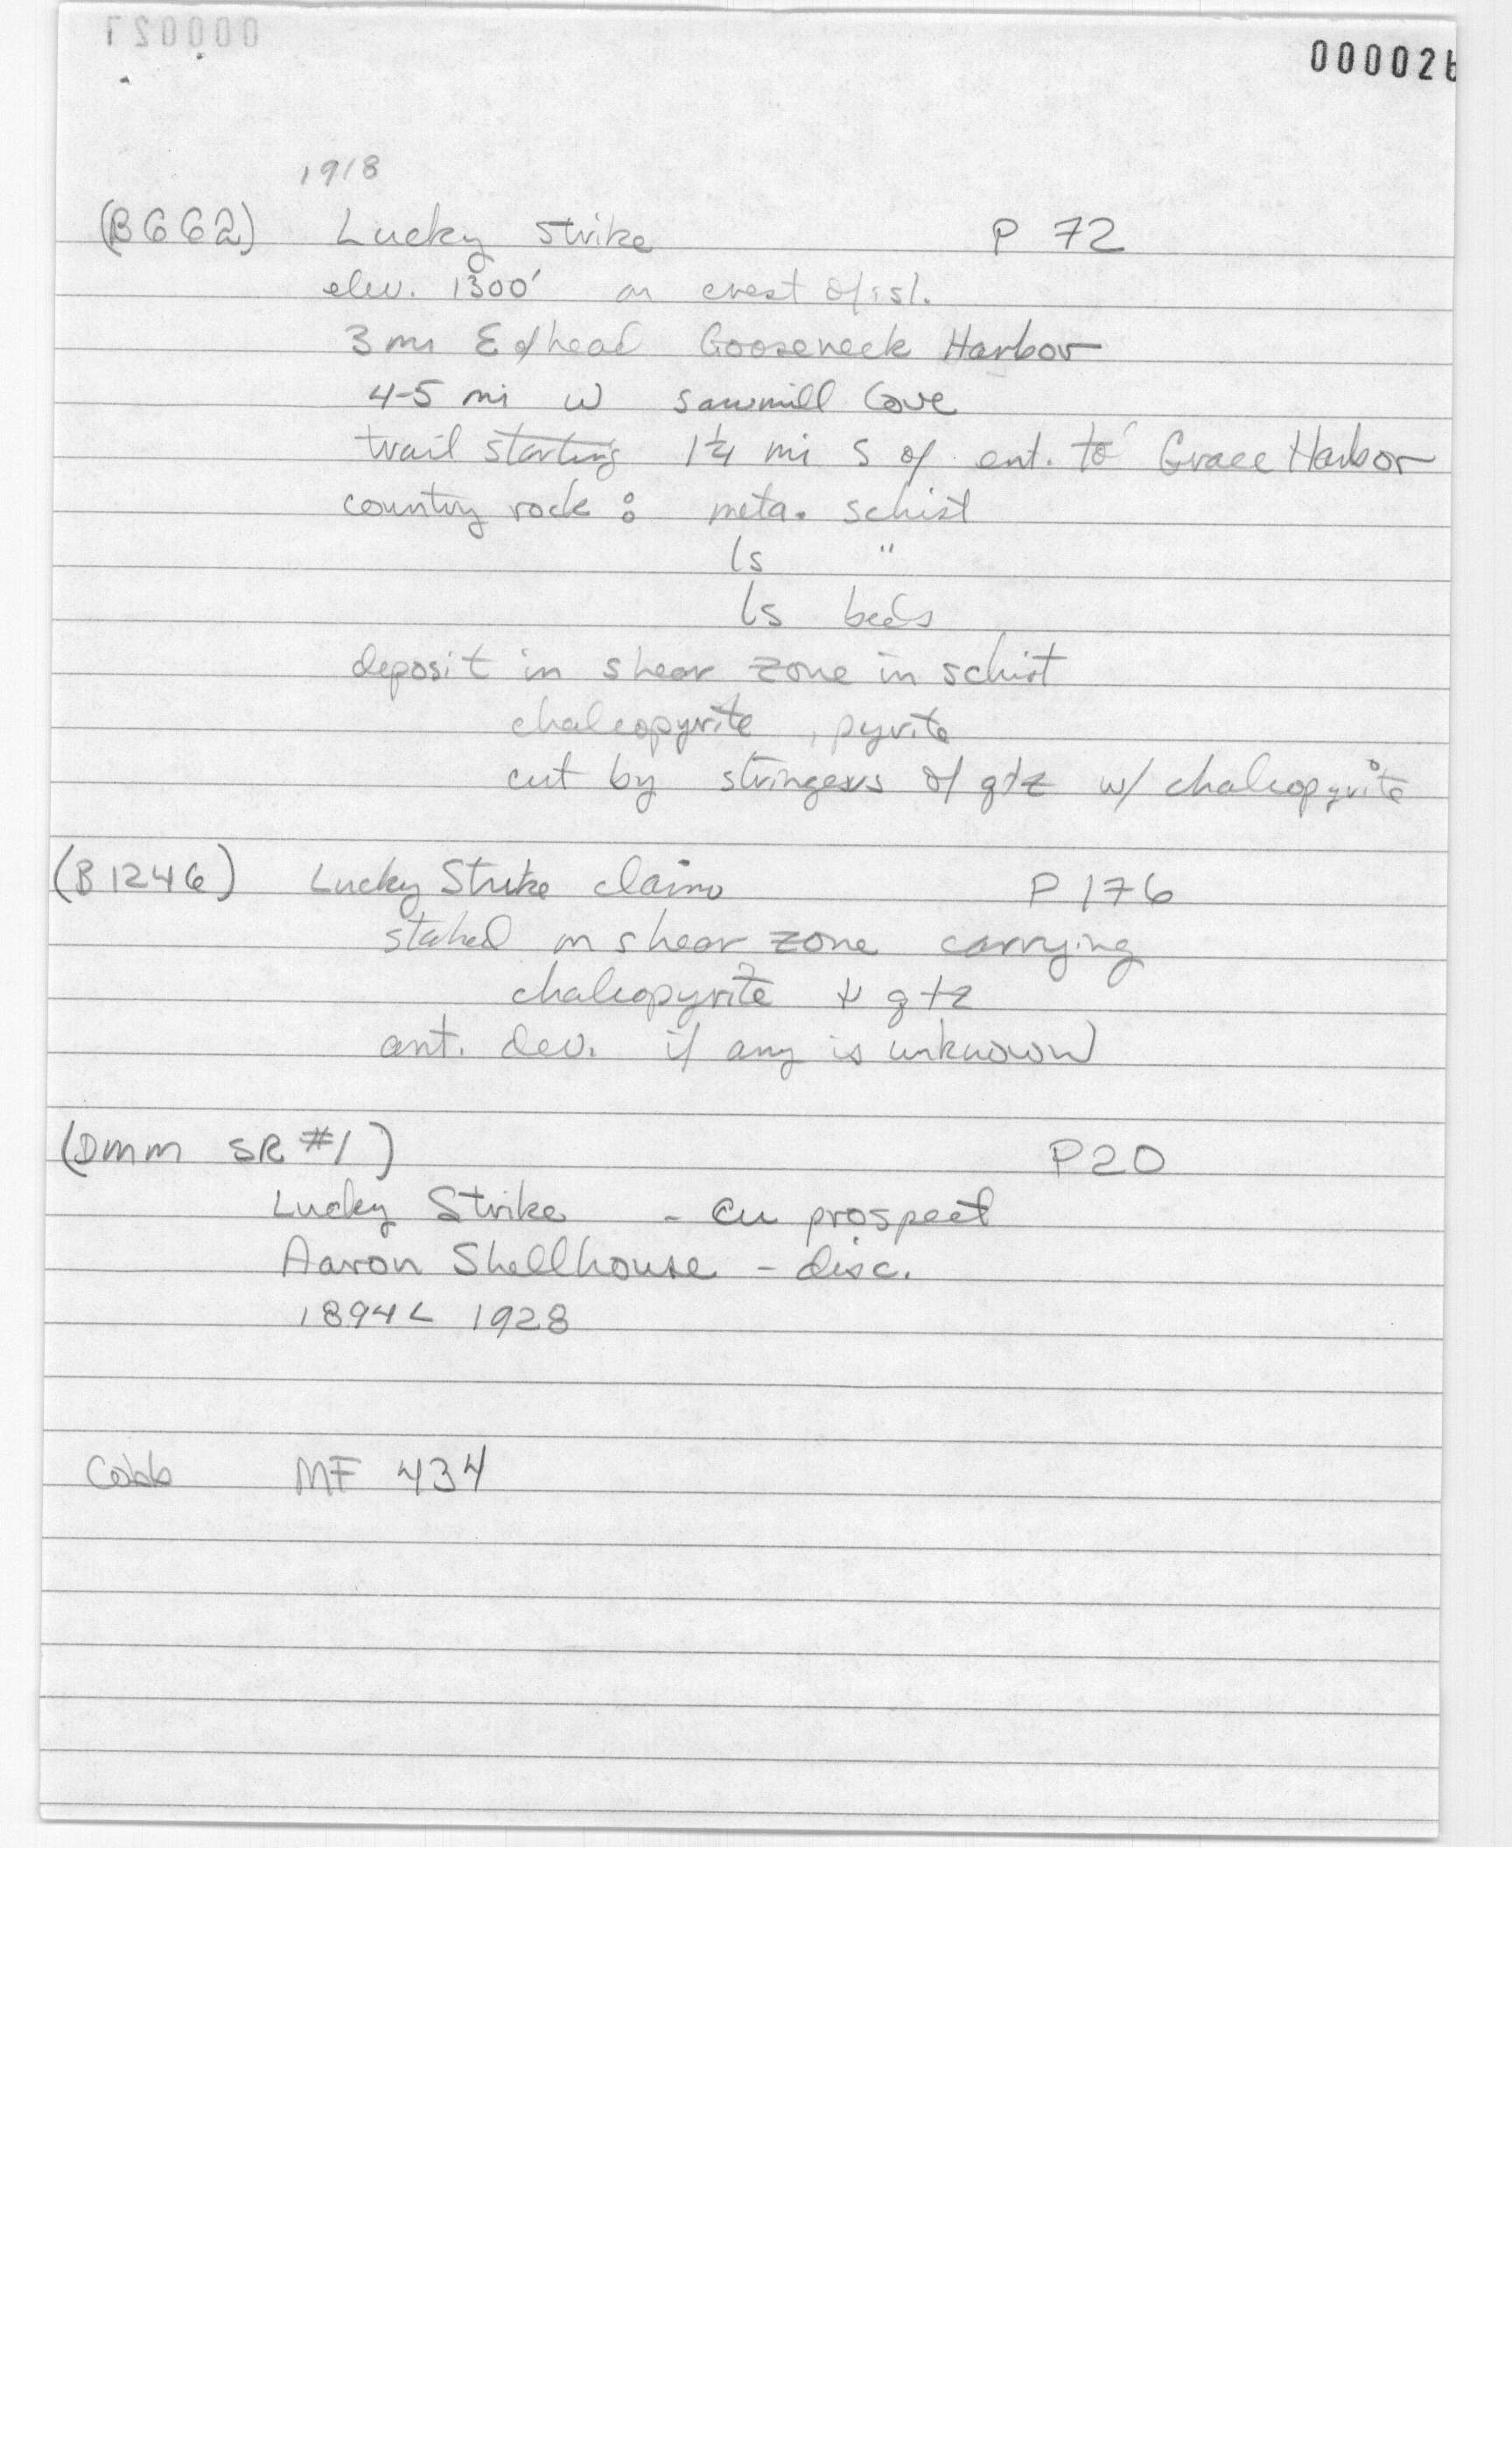 000026
1918
(B662) Lucky Strike P 72
elev. 1300' on crest of isl.
3 mi E of head Gooseneck Harbor
4-5 mi W Sawmill Cove
trail starting 1¼ mi S of ent. to Grace Harbor
country rock: meta. schist
ls "
ls beds
deposit in shear zone in schist
chalcopyrite, pyrite
cut by stringers of qtz w/ chalcopyrite
(B1246) Lucky Strike claims P 176
staked on shear zone carrying
chalcopyrite & qtz
amt. dev. if any is unknown
(DMM SR #1) P20
Lucky Strike - Cu prospect
Aaron Shellhouse - disc.
1894 < 1928
Cobb MF 434